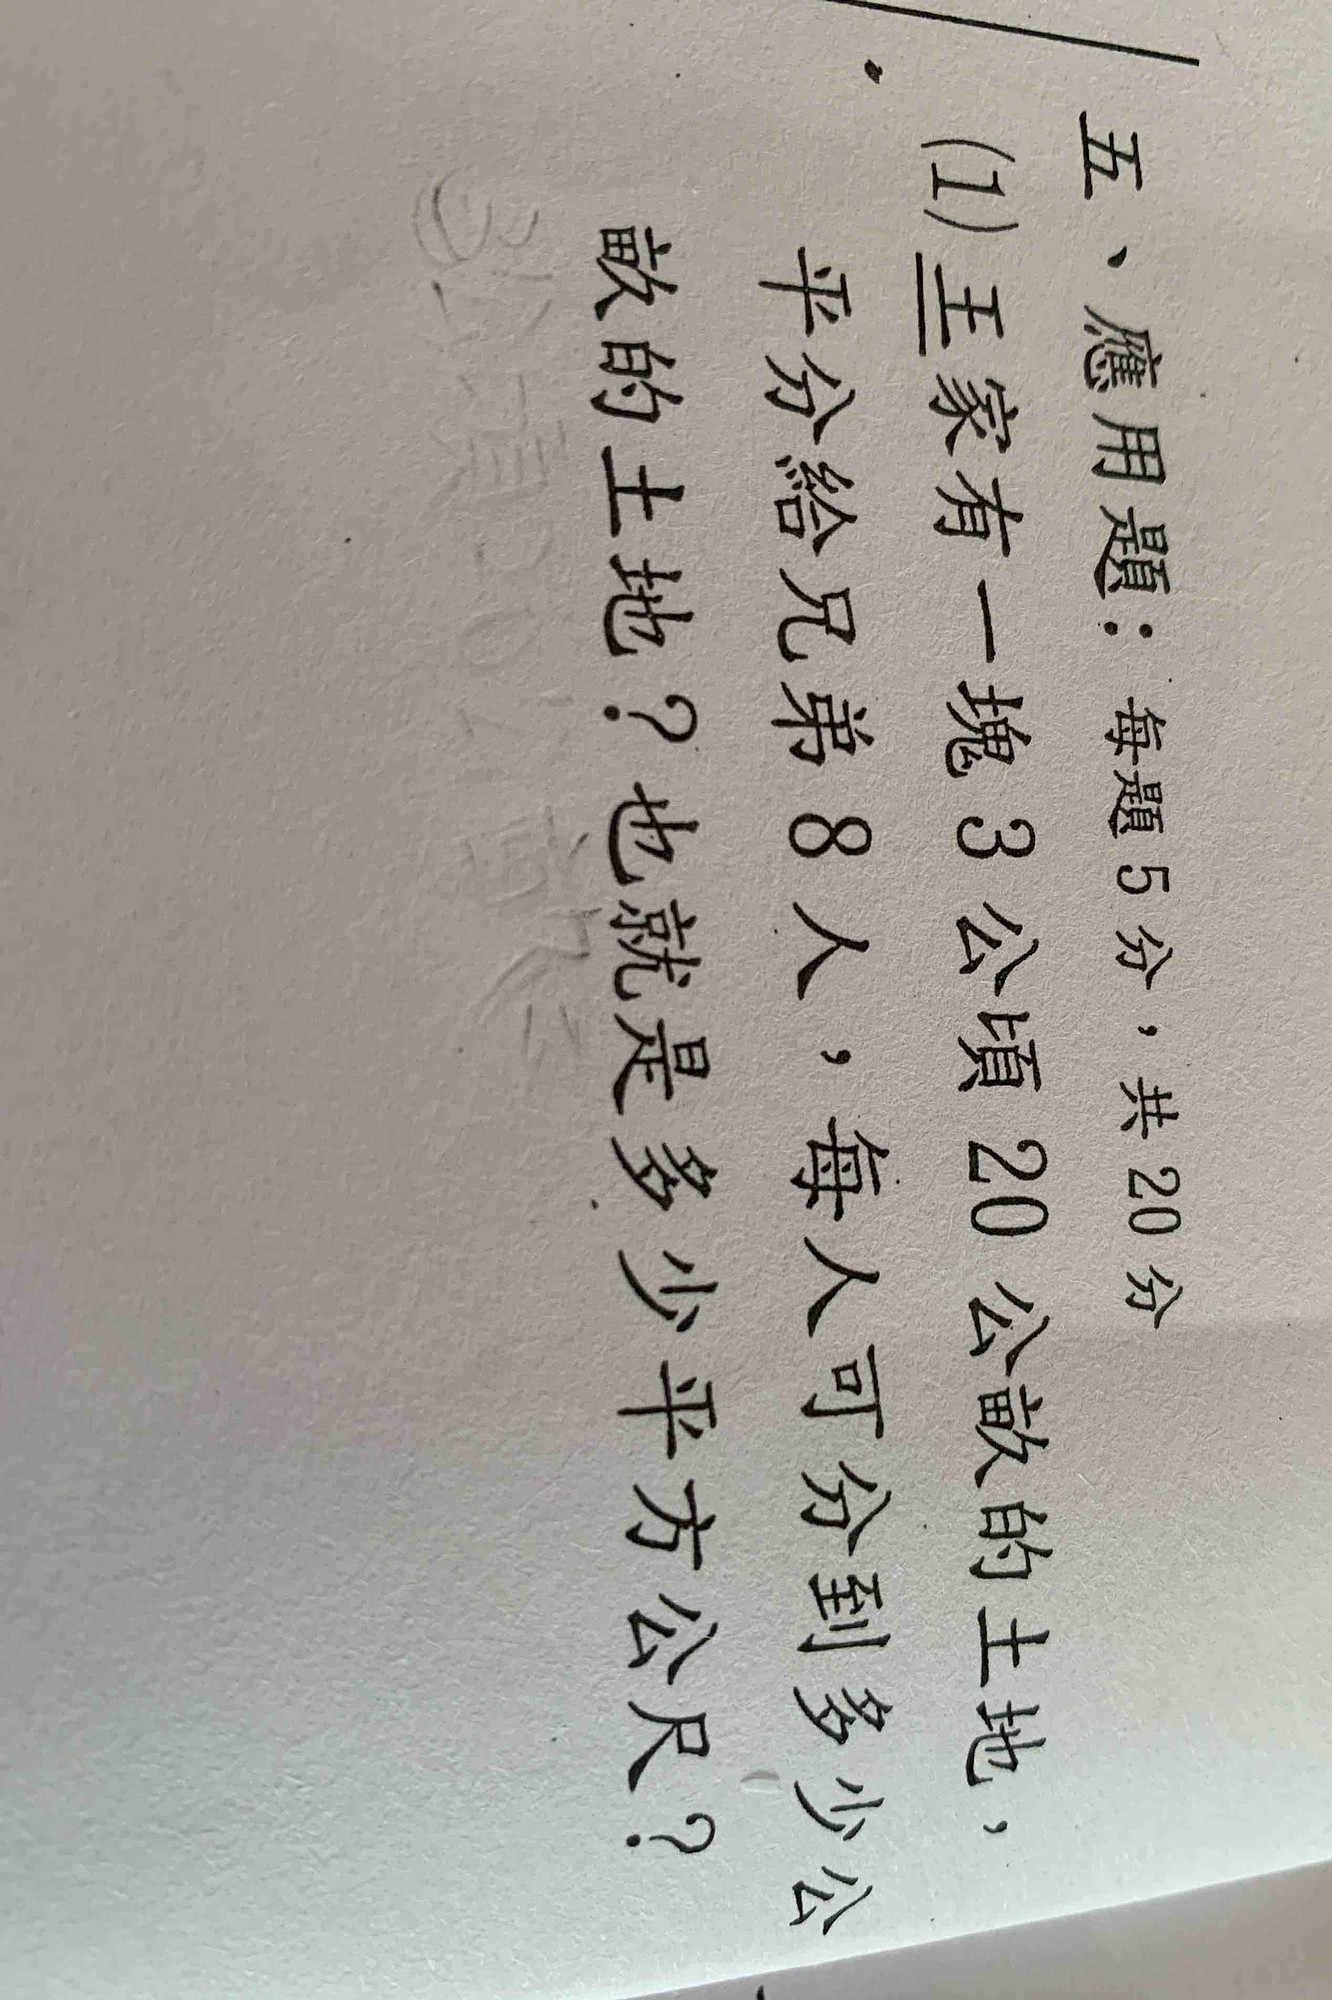 五、應用題：每題5分，共20分
(1)王家有一塊3公頃20公畝的土地，
平分給兄弟8人，每人可分到多少公
畝的土地？也就是多少平方公尺？